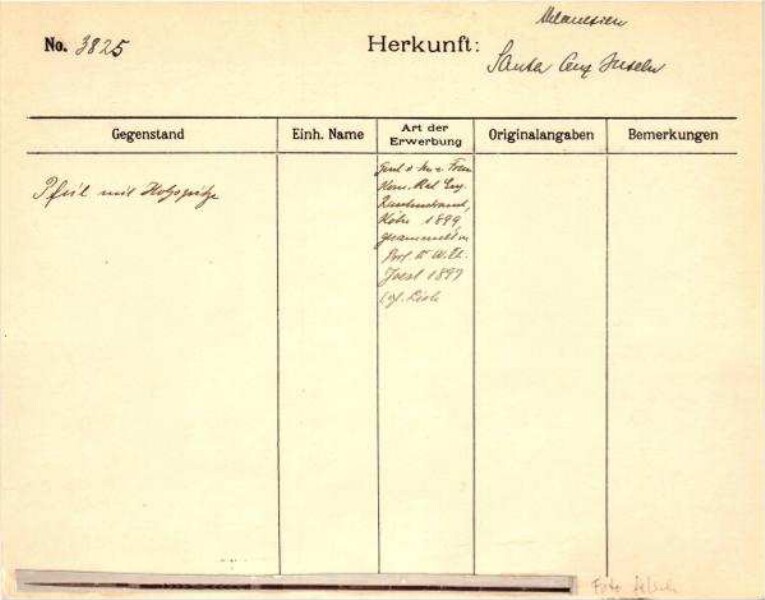 No. 3825
Herkunft: Melanesien
Santa Cruz Inseln
Gegenstand
Einh. Name
Art der Erwerbung
Originalangaben
Bemerkungen
Pfeil mit Holzspitze
Frau
Rautenstrauch,
Köln 1899
gesammelt v.
Prof. Dr W.
Joest 1897
Foto